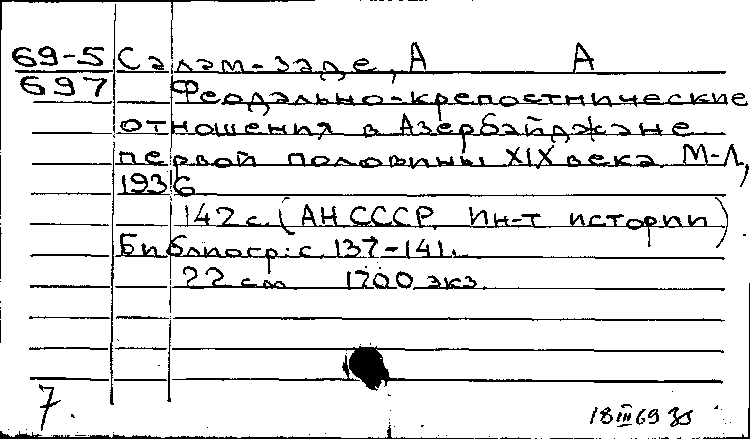 69-5 Салам-заде, А А
697 Феодально-крепостнические
отношения в Азербайджане
первой половины XIX века. М-Л,
1936
142 с. (АН СССР. Ин-т истории)
Библиогр: с. 137-141.
22 см 1700 экз.
7.
18 III 69